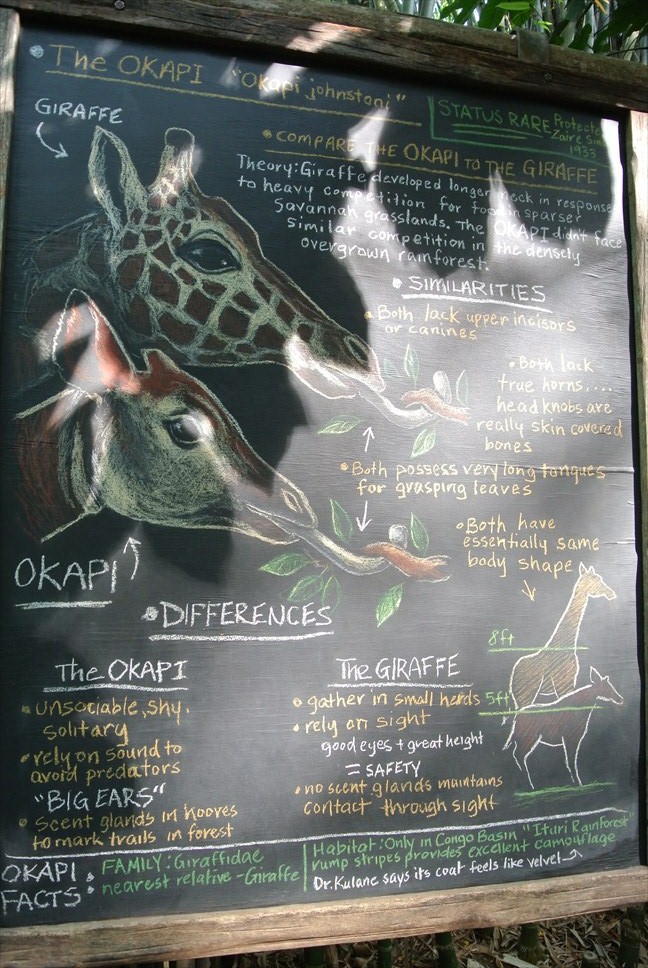 The OKAPI "Okapi johnstoni"
STATUS RARE
Zaire
1933
GIRAFFE
• COMPARE THE OKAPI TO THE GIRAFFE
Theory: Giraffe developed longer neck in response
to heavy competition for food in sparser
Savannah grasslands. The OKAPI didn't face
similar competition in the densely
overgrown rainforest.
• SIMILARITIES
• Both lack upper incisors
or canines
• Both lack
true horns,...
head knobs are
really skin covered
bones
• Both possess very long tongues
for grasping leaves
• Both have
essentially same
body shape
OKAPI
8ft
5ft
• DIFFERENCES
The OKAPI
• unsociable, shy.
solitary
• rely on sound to
avoid predators
"BIG EARS"
• Scent glands in hooves
to mark trails in forest
The GIRAFFE
• gather in small herds
• rely on sight
good eyes + great height
= SAFETY
• no scent glands maintains
contact through sight
OKAPI
FACTS:
FAMILY: Giraffidae
nearest relative - Giraffe
Habitat: Only in Congo Basin "Ituri Rainforest
rump stripes provides excellent camouflage
Dr. Kulane says its coat feels like velvet